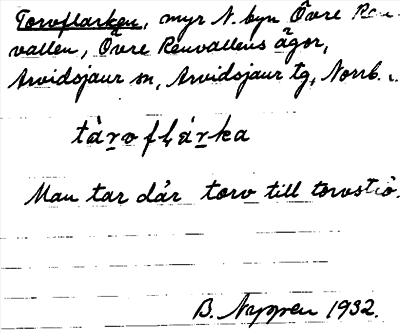 Torvflarken, myr N. byn Övre Ren-
vallen, Övre Renvallens ägor,
Arvidsjaur sn, Arvidsjaur tg, Norrb. l.
tàrvflárka
Man tar där torv till torvströ.
B. Nygren 1932.